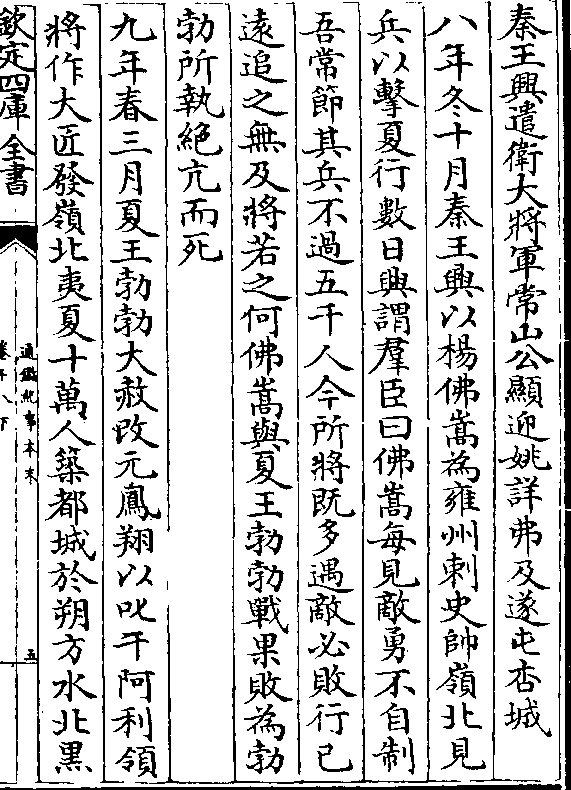 秦王興遣衛大將軍常山公顯迎姚詳弗及遂屯杏城
八年冬十月秦王興以楊佛嵩為雍州刺史帥嶺北見
兵以擊夏行數日興謂羣臣曰佛嵩每見敵勇不自制
吾常節其兵不過五千人今所將既多遇敵必敗行已
遠追之無及將若之何佛嵩與夏王勃勃戰果敗為勃
勃所執絕亢而死
九年春三月夏王勃勃大赦改元鳳翔以叱干阿利領
將作大匠發嶺北夷夏十萬人築都城於朔方水北黑
欽定四庫全書
通鑑紀事本末
五